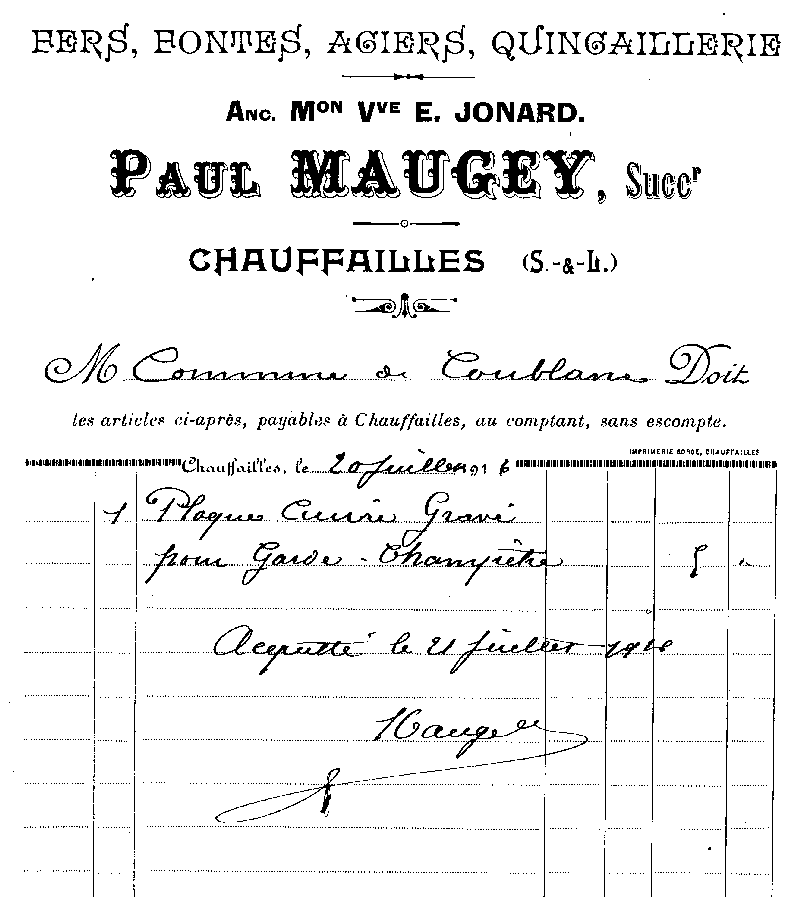 FERS, FONTES, ACIERS, QUINCAILLERIE
ANC. MON VVE E. JONARD.
PAUL MAUGEY, Succr
CHAUFFAILLES (S.-&-L.)
M Commune de Coublanc Doit
les articles ci-après, payables à Chauffailles, au comptant, sans escompte.
IMPRIMERIE BORDE, CHAUFFAILLES
Chauffailles, le 20 Juillet 1916
1 Plaque Cuivre Gravé
pour Garde-Champêtre 5 "
Acquitté le 21 Juillet 1916
Maugey